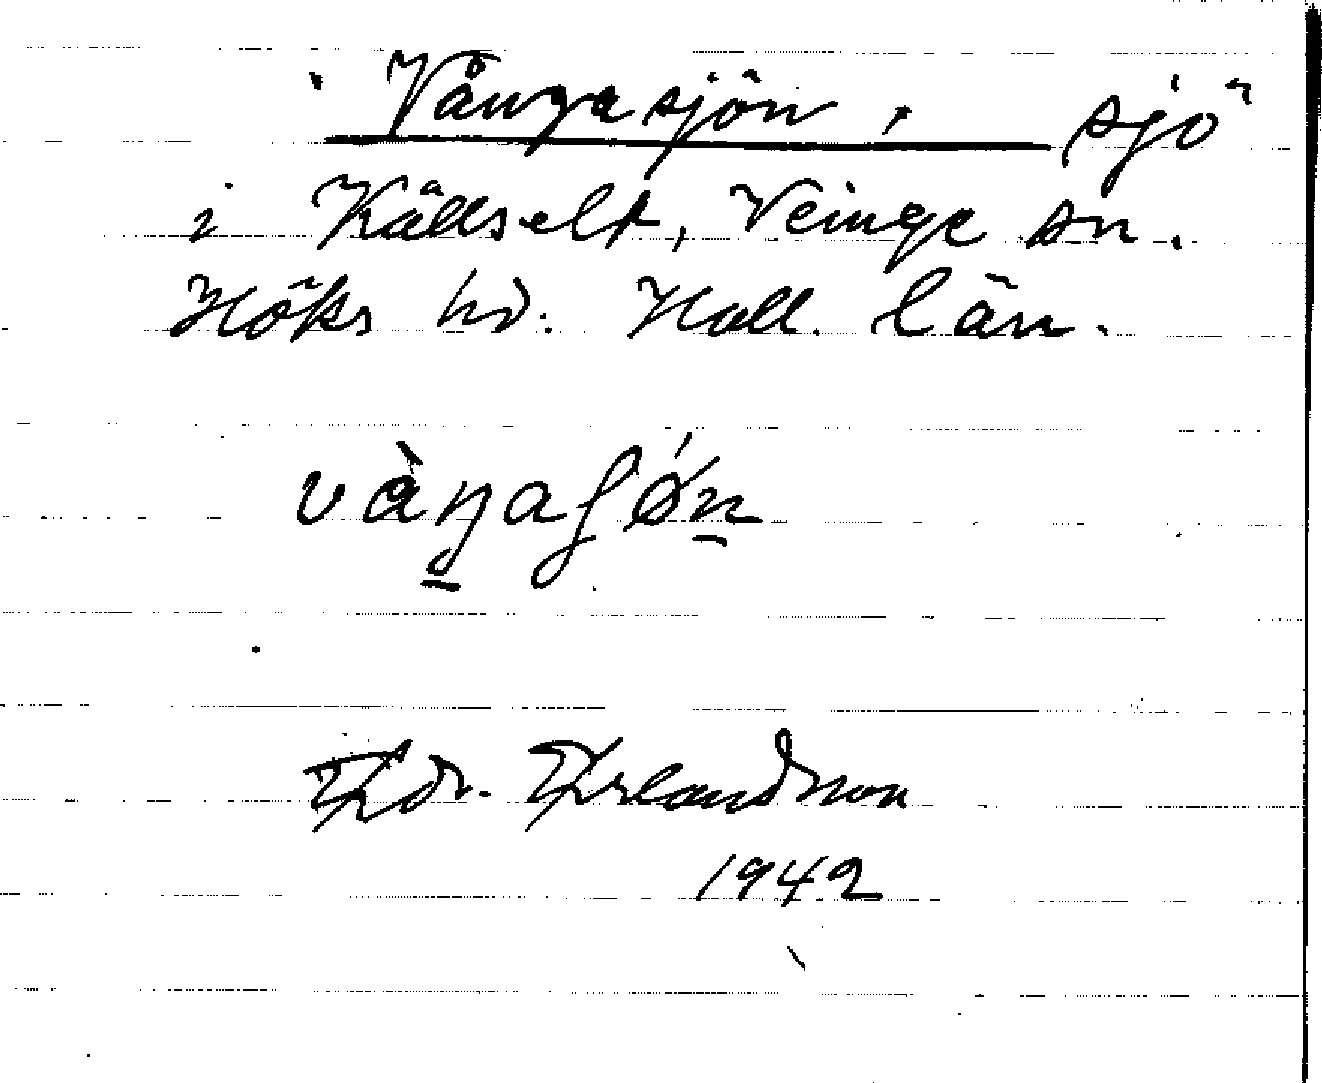 Vångasjön, sjö
i Källselt, Veinge sn.
Höks hd. Hall. län.
vàŋaʃǿn
Thdr. Erlandsson
1942